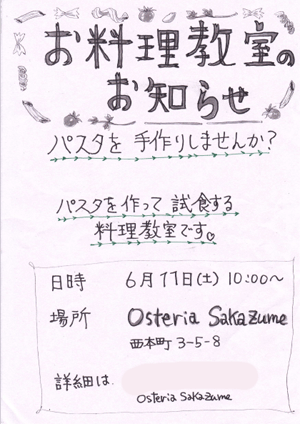 お料理教室の
お知らせ
パスタを 手作りしませんか?
パスタを作って 試食する
料理教室です。
日時 6月11日(土) 10:00〜
場所 Osteria Sakazume
西本町 3-5-8
詳細は
Osteria Sakazume